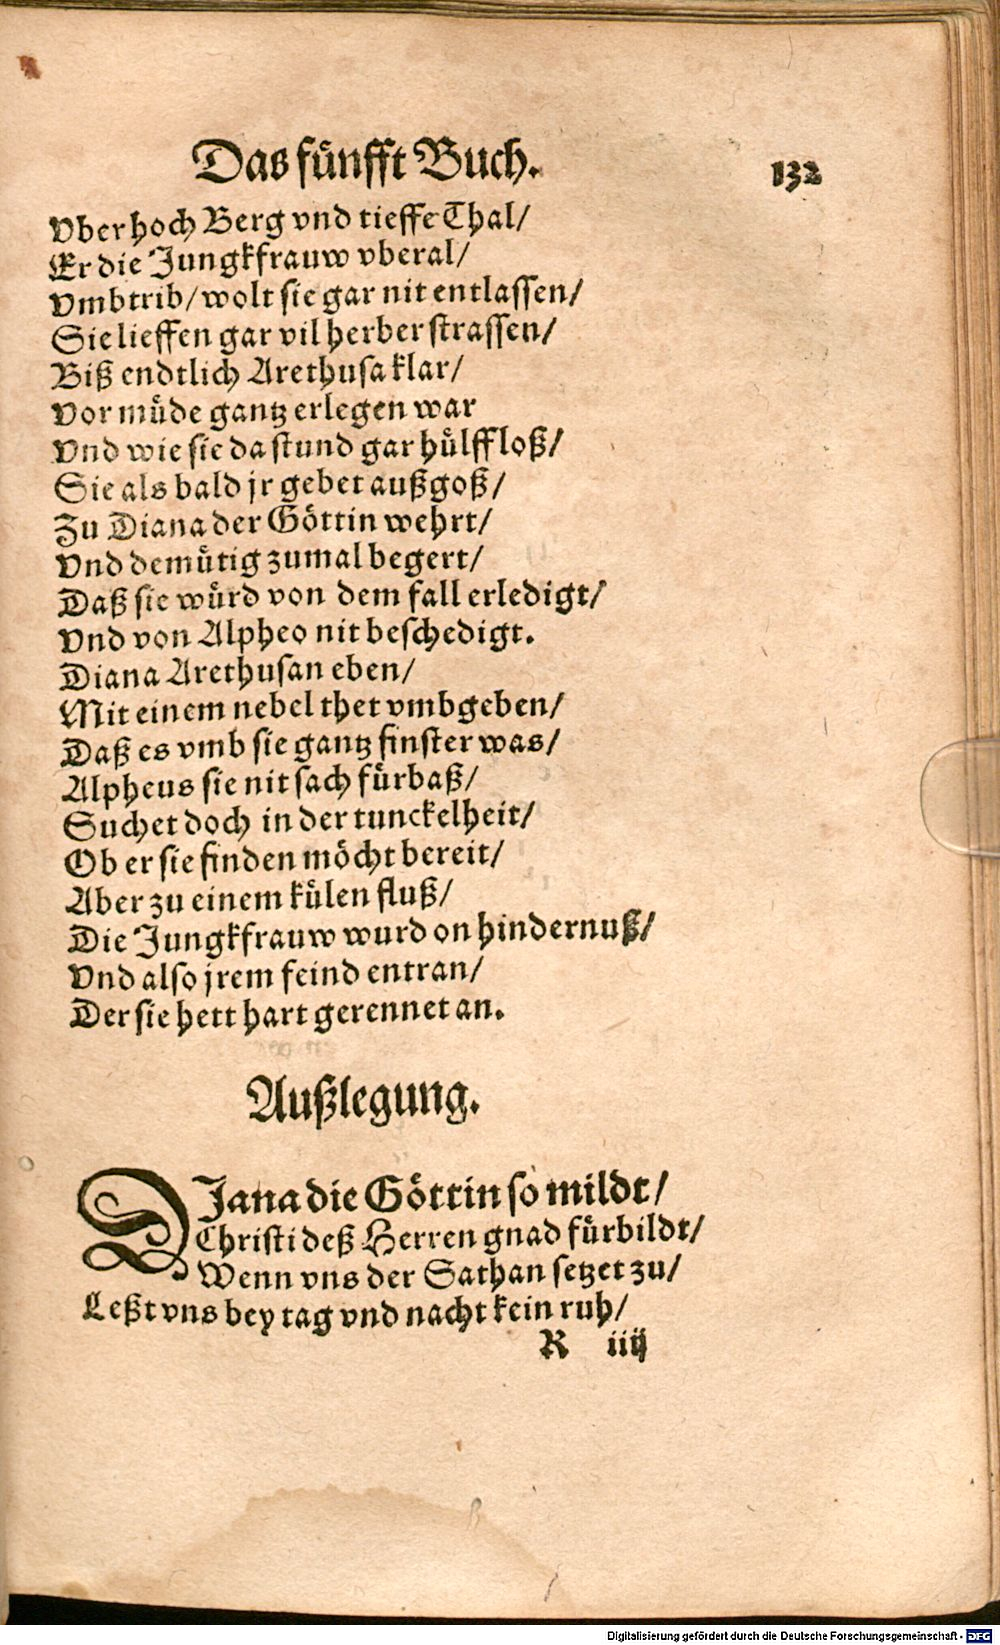 Das fünfft Buch. 132
Vber hoch Berg vnd tieffe Thal/
Er die Jungkfrauw vberal/
Vmbtrib/ wolt sie gar nit entlassen/
Sie lieffen gar vil herber strassen/
Biß endtlich Arethusa klar/
Vor müde gantz erlegen war
Vnd wie sie da stund gar hülffloß/
Sie als bald jr gebet außgoß/
Zu Diana der Göttin wehrt/
Vnd demütig zumal begert/
Daß sie würd von dem fall erledigt/
Vnd von Alpheo nit beschedigt.
Diana Arethusan eben/
Mit einem nebel thet vmbgeben/
Daß es vmb sie gantz finster was/
Alpheus sie nit sach fürbaß/
Suchet doch in der tunckelheit/
Ob er sie finden möcht bereit/
Aber zu einem külen fluß/
Die Jungkfrauw wurd on hindernuß/
Vnd also jrem feind entran/
Der sie hett hart gerennet an.
Außlegung.
DJana die Göttin so mildt/
Christi deß Herren gnad fürbildt/
Wenn vns der Sathan setzet zu/
Leßt vns bey tag vnd nacht kein ruh/
R iiij
Digitalisierung gefördert durch die Deutsche Forschungsgemeinschaft - DFG